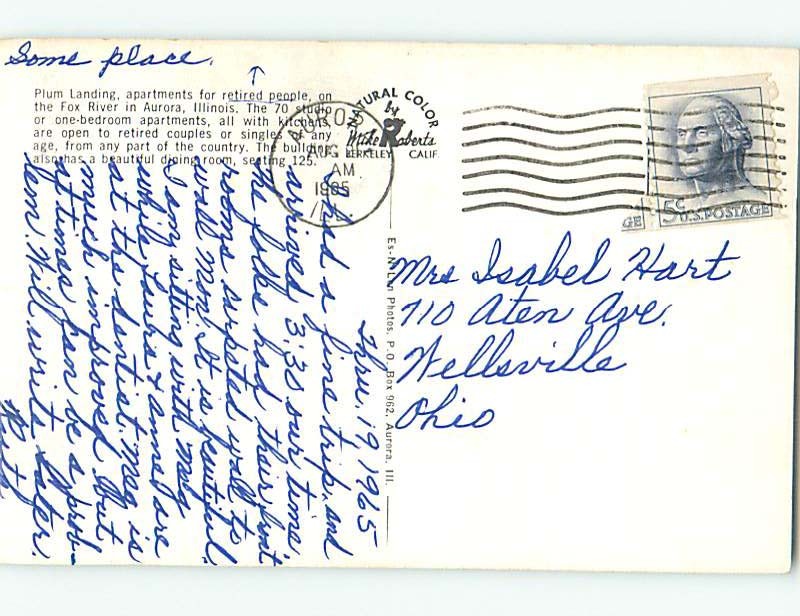 Some place.
Plum Landing, apartments for retired people, on
the Fox River in Aurora, Illinois. The 70 studio
or one-bedroom apartments, all with kitchens,
are open to retired couples or singles of any
age, from any part of the country. The building
also has a beautiful dining room, seating 125.
NATURAL COLOR
by
Mike Roberts
BERKELEY CALIF.
AUG
AM
1965
GE
5¢ U.S. POSTAGE
Thru, 19, 1965
Had a fine trip, and
arrived 3:30 our time,
the folks had their front
rooms carpeted wall to
wall Mon. It is beautiful.
I am sitting with Meg
while Laura & Anne are
at the dentist. Meg is
much improved but
at times can be a prob-
lem. Will write later.
Ruth
Photos, P.O. Box 962, Aurora, Ill.
Mrs Isabel Hart
710 Aten Ave.
Wellsville
Ohio